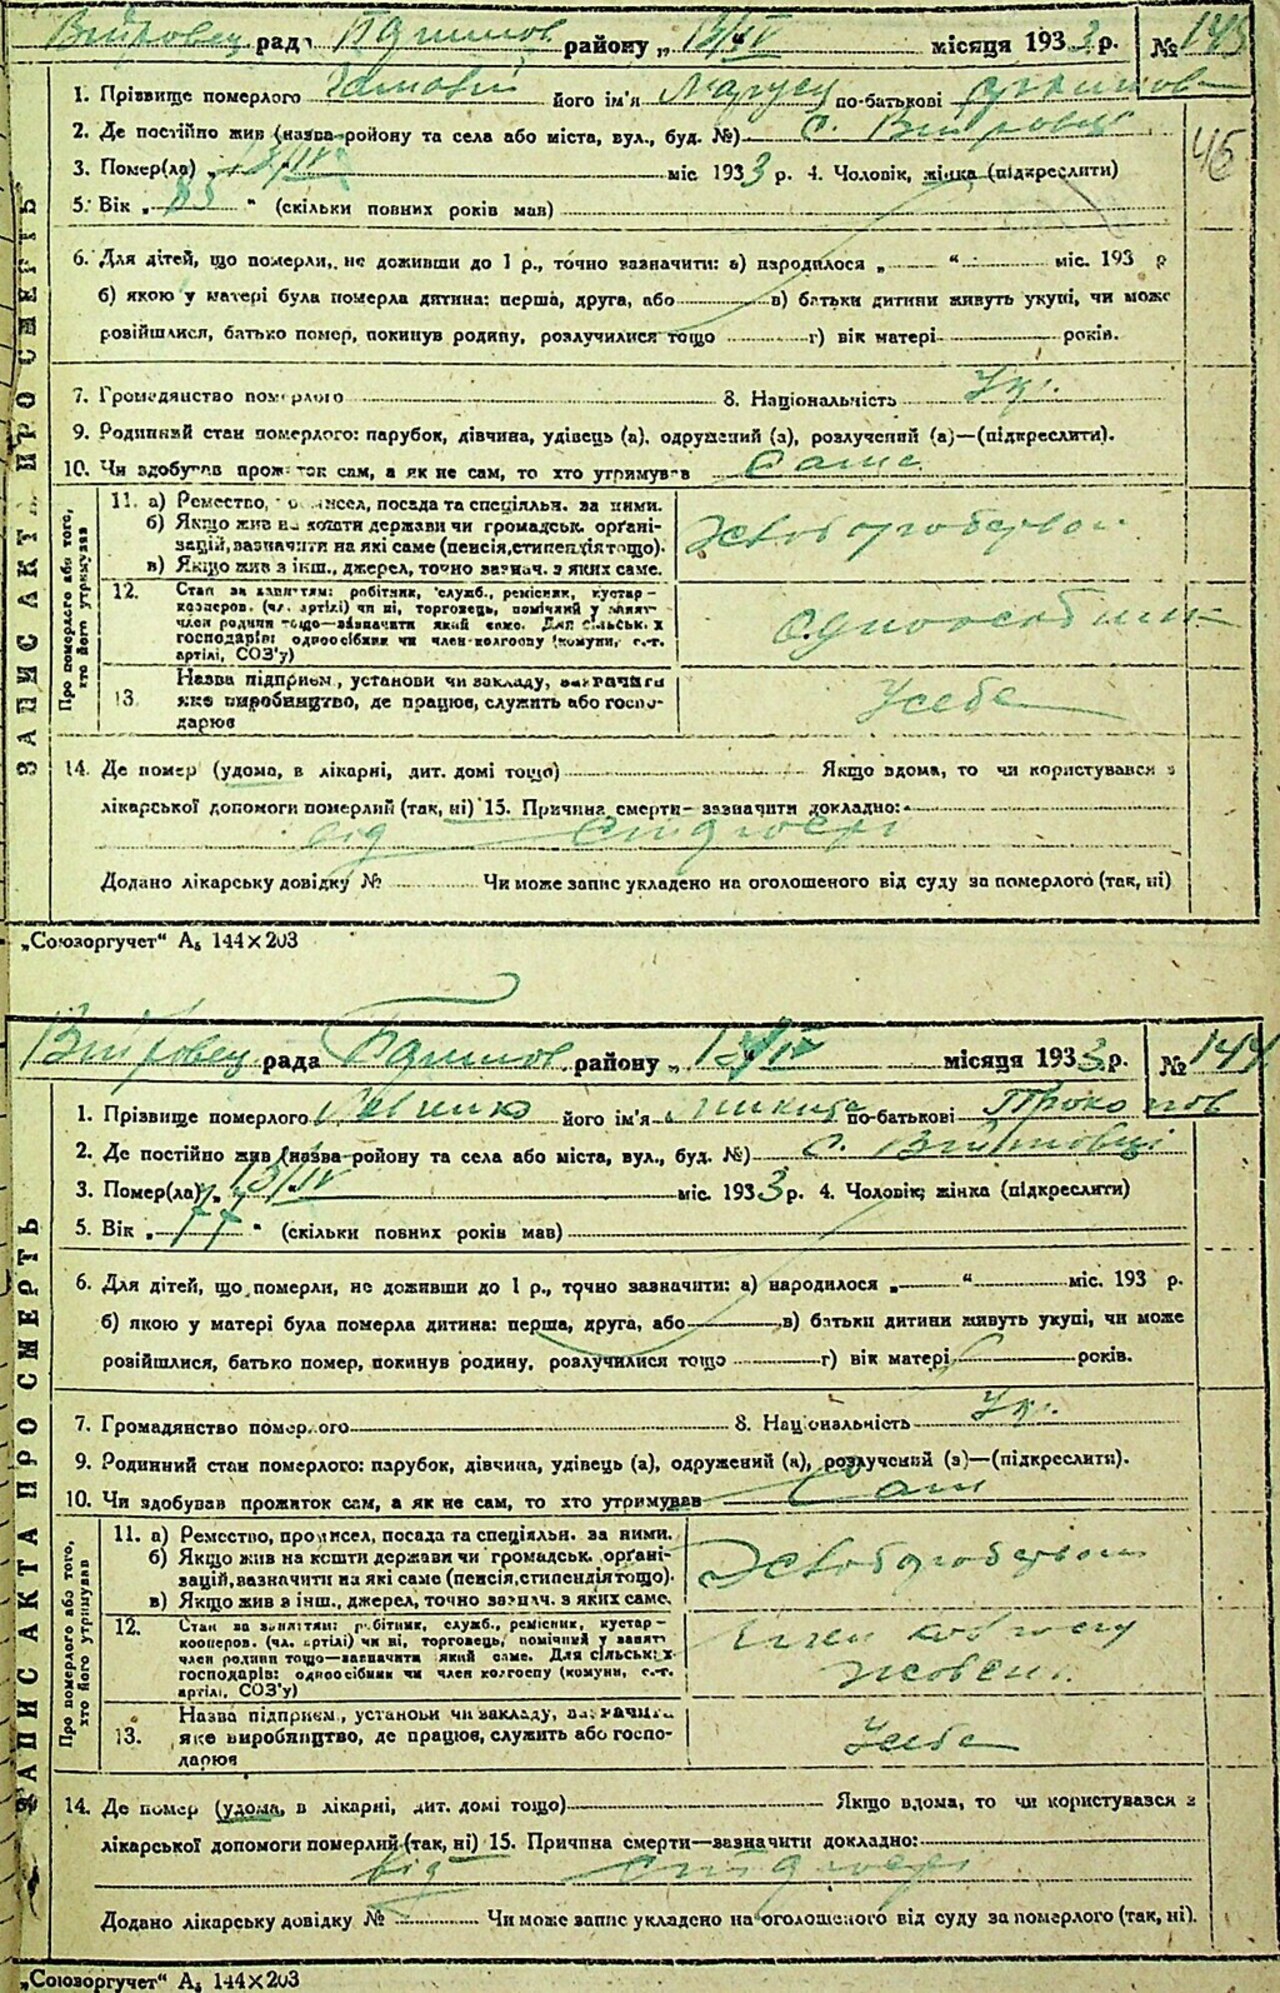 рада району „ 13/IV місяця 1933 р. № 145
1. Прізвище померлого його ім'я по-батькові
2. Де постійно жив (назва району та села або міста, вул., буд. №) с.
46
3. Помер(ла) „ 13/IV міс 1933 р. 4. Чоловік, жінка (підкреслити)
5. Вік „ 85 “ (скільки повних років мав)
6. Для дітей, що померли, не доживши до 1 р., точно зазначити: а) народилося „ “ міс. 193 р
б) якою у матері була померла дитина: перша, друга, або в) батьки дитини живуть укупі, чи може
розійшлися, батько помер, покинув родину, розлучилися тощо г) вік матері років.
7. Громадянство померлого 8. Національність Укр.
9. Родинний стан померлого: парубок, дівчина, удівець (а), одружений (а), розлучений (а)—(підкреслити).
10. Чи здобував прожиток сам, а як не сам, то хто утримував Сама
ЗАПИС АКТА ПРО СМЕРТЬ
Про померлого або того, хто його утримував
11. а) Ремество, промисел, посада та спеціяльн. за ними.
б) Якщо жив на кошти держави чи громадськ. орґані-
зацій, вазначити на які саме (пенсія, стипендія тощо).
в) Якщо жив з інш., джерел, точно зазнач. з яких саме.
Хлібороберкой
12. Стан за заняттям: робітник, служб., ремісник, кустар-
кооперов. (чл. артілі) чи ні, торговець, помічний у занят-
член родини тощо—вазначити який саме. Для сільськ. х
господарів: одноосібник чи член колгоспу (комуни, с.-г.
артілі, СОЗ'у)
Одноосібник
13. Назва підприєм., установи чи закладу, вазначити
яке виробництво, де працює, служить або госпо-
дарює
У себе
14. Де помер (удома, в лікарні, дит. домі тощо) Якщо вдома, то чи користувався з
лікарської допомоги померлий (так, ні) 15. Причина смерти—зазначити докладно:
від
Додано лікарську довідку № Чи може запис укладено на оголошеного від суду за померлого (так, ні)
„Союзоргучет“ А₅ 144×203
рада району „ 13/IV місяця 1933 р. № 144
1. Прізвище померлого його ім'я Микита по-батькові Прокопов
2. Де постійно жив (назва району та села або міста, вул., буд. №) с. Війтовці
3. Помер(ла) „ 13/IV міс. 1933 р. 4. Чоловік, жінка (підкреслити)
5. Вік „ 77 “ (скільки повних років мав)
6. Для дітей, що померли, не доживши до 1 р., точно зазначити: а) народилося „ “ міс. 193 р.
б) якою у матері була померла дитина: перша, друга, або в) батьки дитини живуть укупі, чи може
розійшлися, батько помер, покинув родину, розлучилися тощо г) вік матері років.
7. Громадянство померлого 8. Національність Укр.
9. Родинний стан померлого: парубок, дівчина, удівець (а), одружений (а), розлучений (а)—(підкреслити).
10. Чи здобував прожиток сам, а як не сам, то хто утримував Сам
ЗАПИС АКТА ПРО СМЕРТЬ
Про померлого або того, хто його утримував
11. а) Ремество, промисел, посада та спеціяльн. за ними.
б) Якщо жив на кошти держави чи громадськ. орґані-
зацій, вазначити на які саме (пенсія, стипендія тощо).
в) Якщо жив з інш., джерел, точно зазнач. з яких саме.
12. Стан за заняттям: робітник, служб., ремісник, кустар-
кооперов. (чл. артілі) чи ні, торговець, помічний у занят
член родини тощо—вазначити який саме. Для сільськ. х
господарів: одноосібник чи член колгоспу (комуни, с.-г.
артілі, СОЗ'у)
Член колгоспу
13. Назва підприєм., установи чи закладу, вазначити
яке виробництво, де працює, служить або госпо-
дарює
У себе
14. Де помер (удома, в лікарні, дит. домі тощо) Якщо вдома, то чи користувався з
лікарської допомоги померлий (так, ні) 15. Причина смерти—вазначити докладно:
від
Додано лікарську довідку № Чи може запис укладено на оголошеного від суду за померлого (так, ні).
„Союзоргучет“ А₅ 144×203